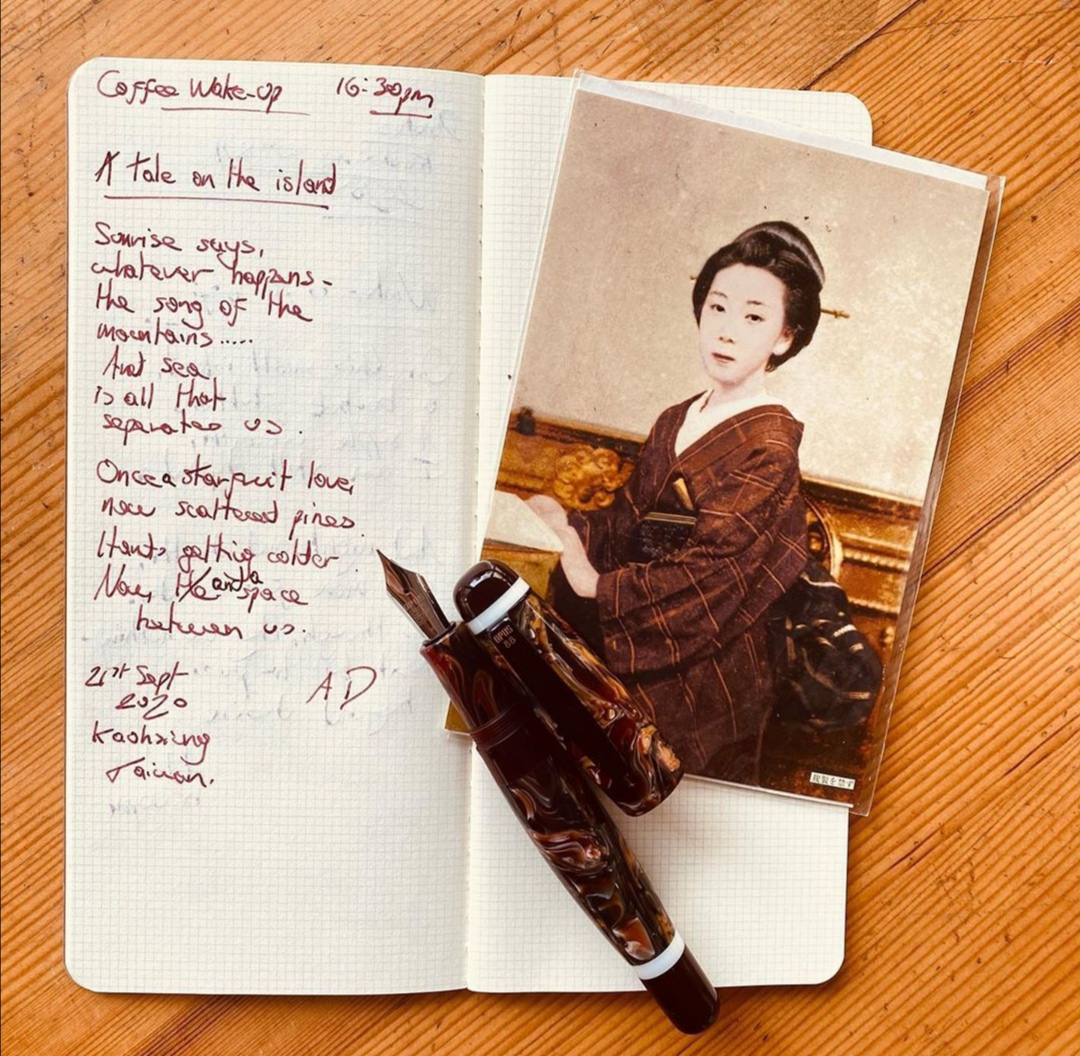 Coffee Wake-Up 16:30pm
A tale on the island
Sunrise says,
whatever happens -
the song of the
mountains.....
And sea
is all that
separates us.
Once a starfruit love,
now scattered pines.
Hearts getting colder
Now, the and a space
between us.
21st Sept
2020
A D
Kaohxing
Taiwan.
OPUS
88
複製を禁ず